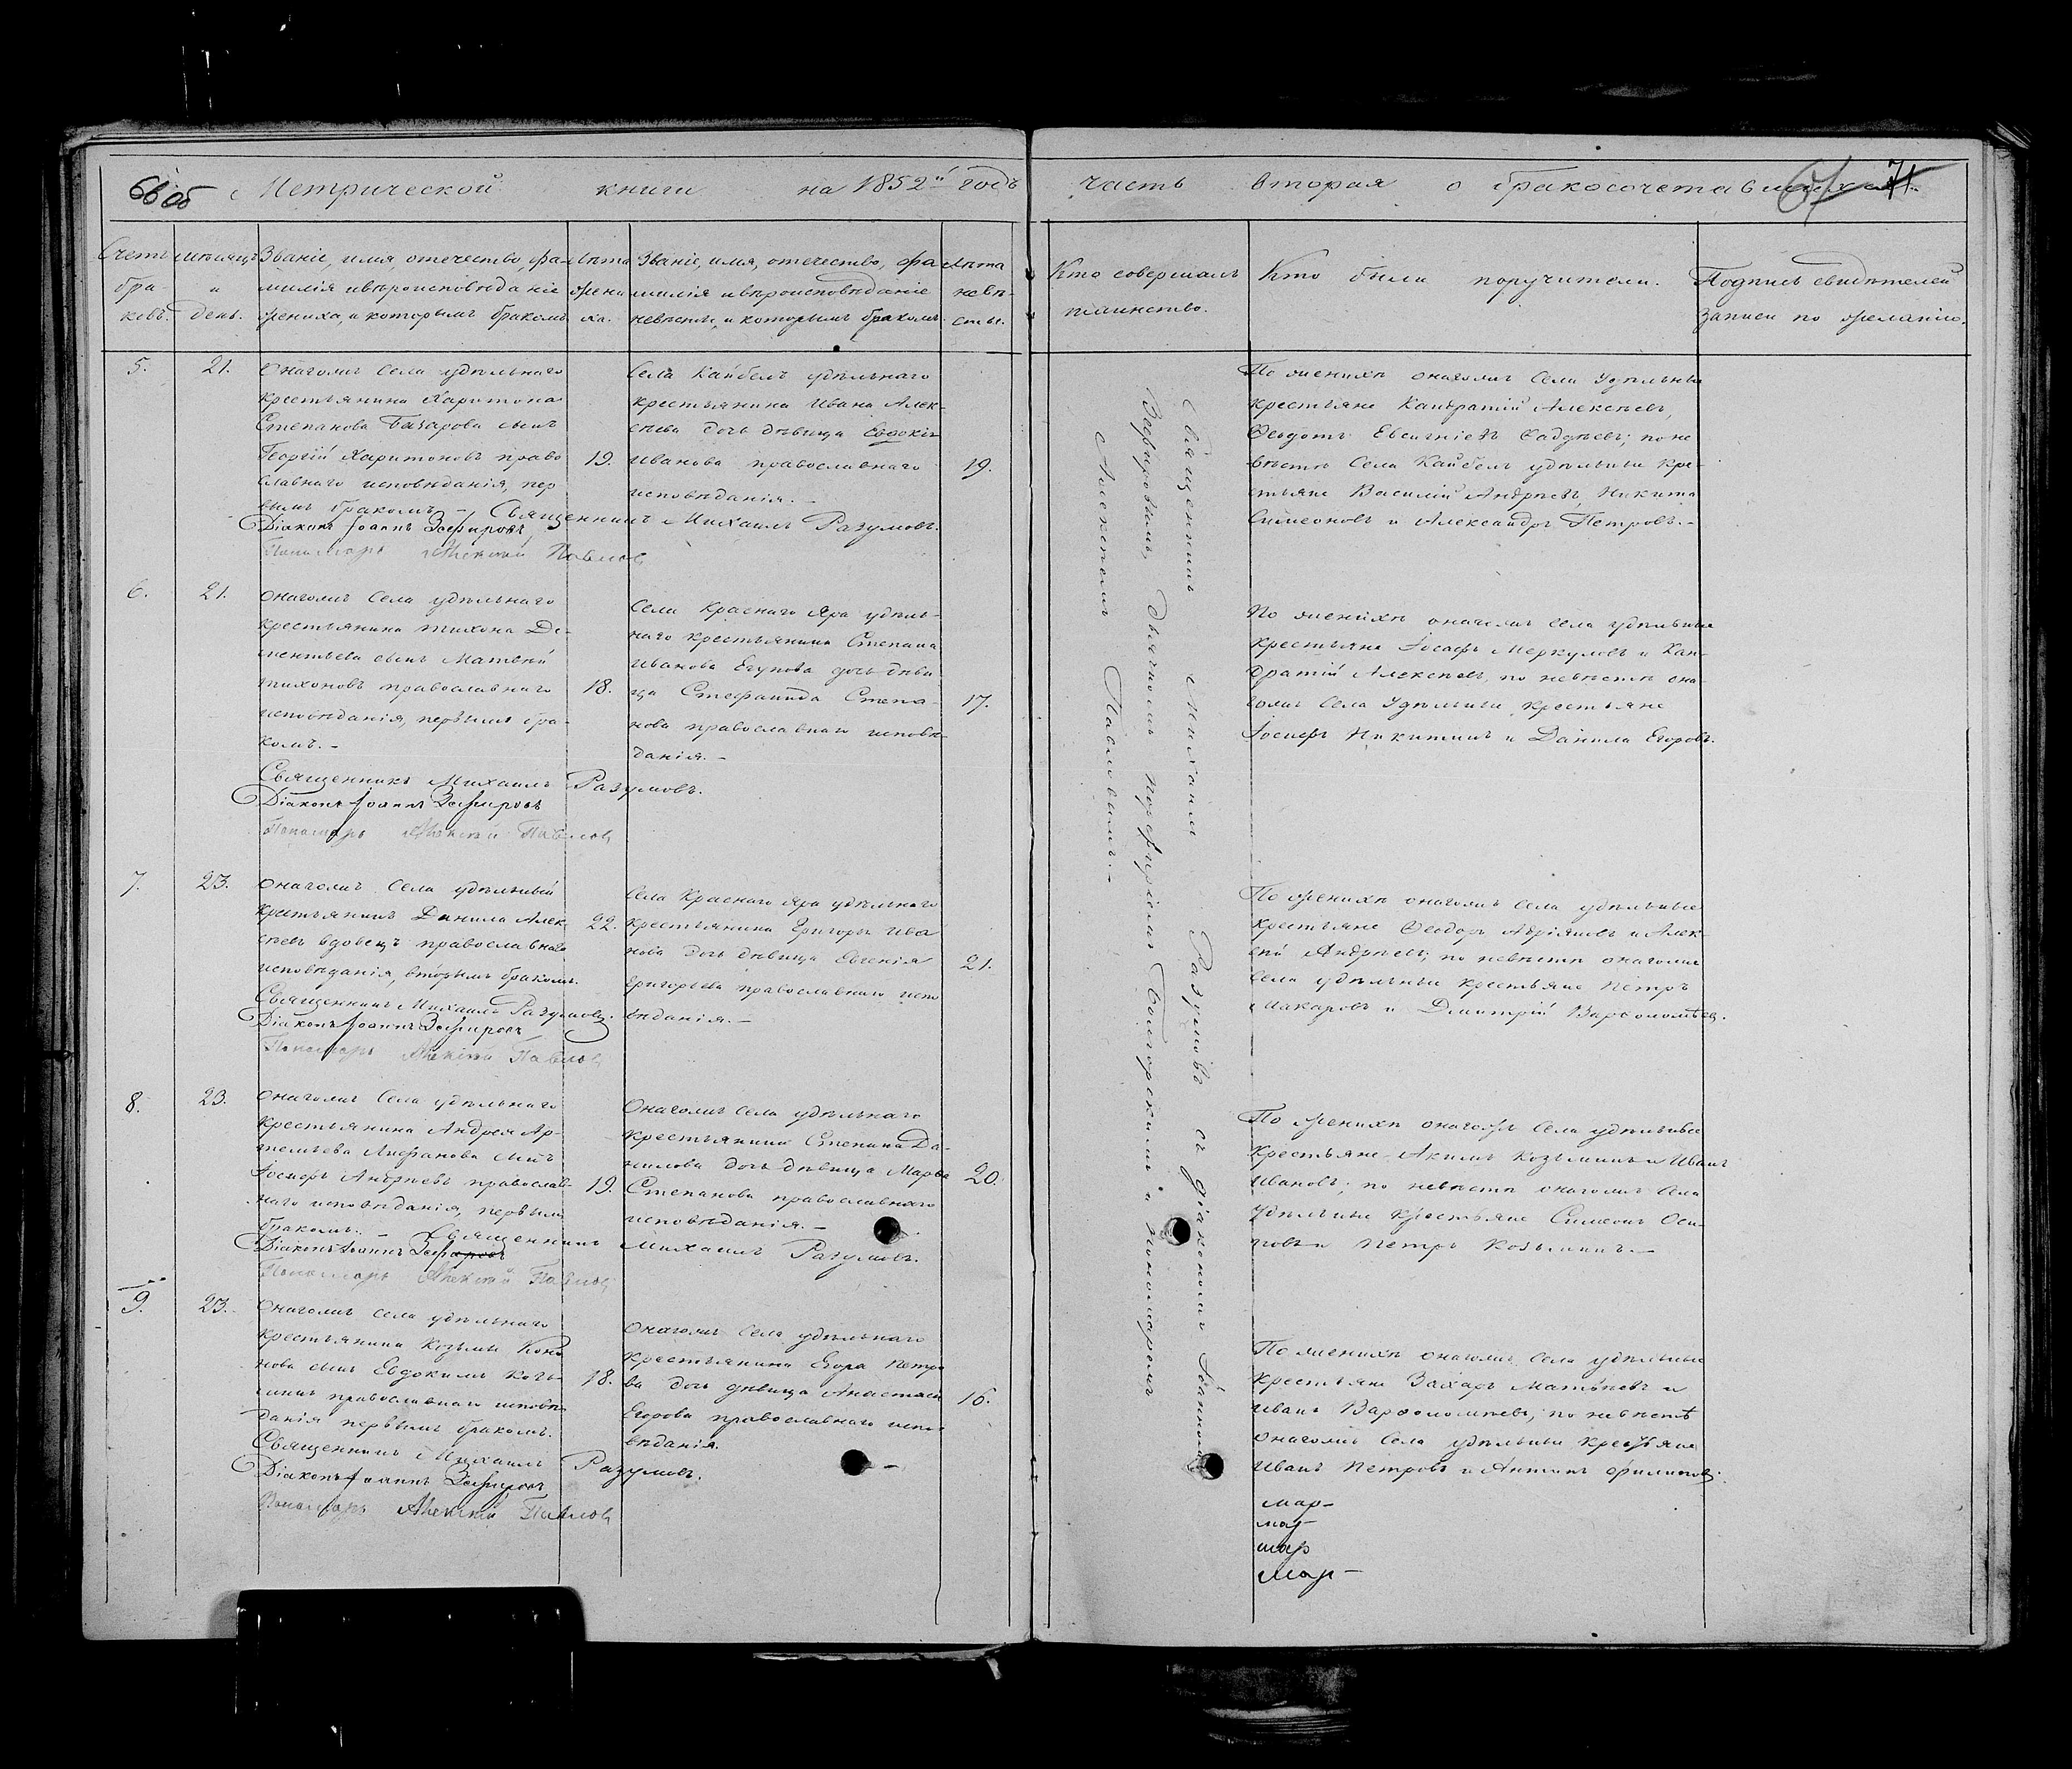 66 об Метрической книги на 1852й годъ
часть вторая о бракосочетавшихся 71.
Счетъ бра-ковъ.
мѣсяцъ и день.
Званіе, имя, отечество, фа-
милія и вѣроисповѣданіе
жениха, и которымъ бракомъ
Лѣта жени-ха.
Званіе, имя, отечество, фа
милія и вѣроисповѣданіе
невѣсты, и которымъ бракомъ.
Лѣта невѣ-сты.
Кто совершалъ
таинство.
Кто были поручители.
Подпись свидѣтелей
записи по желанію.
5. 21.
Онагожъ Села удѣльнаго
крестьянина Харитона
Степанова сынъ
Георгій Харитоновъ право
славнаго исповѣданія, пер
вымъ бракомъ. – Священникъ Михаилъ Разумовъ.
Діаконъ Іоаннъ Зефировъ
Пономарь Алексѣй Павловъ
19.
Села Кайбелъ удѣльнаго
крестьянина Ивана Алек-
сѣева дочь дѣвица Евдокія
Иванова православнаго
исповѣданія. –
19.
По женихѣ онагожъ Села Удѣльные
крестьяне Кандратій Алексѣевъ,
Ѳеодотъ Евсигнѣевъ Фадѣевъ; по не
вѣстѣ Села Кайбелъ удѣльные кре-
стьяне Василій Андрѣевъ Никита
Симеоновъ и Александръ Петровъ. –
6. 21.
Онагожъ Села удѣльнаго
крестьянина Тихона Де-
ментьева сынъ Матвѣй
Тихоновъ православнаго
исповѣданія, первымъ бра-
комъ. –
Священникъ Михаилъ Разумовъ.
Діаконъ Іоаннъ Зефировъ
Пономарь Алексѣй Павловъ
18.
Села Краснаго Яра удѣль-
наго крестьянина Степана
Иванова Егунова дочь дѣви
ца Стефанида Степа-
нова православнаго исповѣ-
данія. –
17.
По женихѣ онагожъ села удѣльные
крестьяне Іосафъ Меркуловъ и Кан-
дратій Алексѣевъ, по невѣстѣ она-
гожъ Села Удѣльные крестьяне
Іосифъ Никитинъ и Данила Егоровъ.
7. 23.
Онагожъ Села удѣльный
крестьянинъ Данила Алек
сѣевъ вдовецъ православнаго
исповѣданія, вторымъ бракомъ.
Священникъ Михаилъ Разумовъ.
Діаконъ Іоаннъ Зефировъ
Пономарь Алексѣй Павловъ
22.
Села Краснаго Яра удѣльнаго
крестьянина Григорья Ива
нова дочь дѣвица Евгенія
Григорьева православнаго испо
вѣданія. –
21.
По женихѣ онагожъ Села удѣльные
крестьяне Ѳеодоръ Адріяновъ и Алек-
сѣй Андрѣевъ; по невѣстѣ онагожъ
Села удѣльные крестьяне Петръ
Макаровъ и Дмитрій Варѳоломѣевъ.
8. 23.
Онагожъ Села удѣльнаго
крестьянина Андрея Ар-
темьева Лифанова сынъ
Іосифъ Андрѣевъ православ-
наго исповѣданія, первымъ
бракомъ. – Священникъ Михаилъ Разумовъ.
Діаконъ Іоаннъ Зефировъ
Пономарь Алексѣй Павловъ
19.
Онагожъ Села удѣльнаго
крестьянина Степана Да-
нилова дочь дѣвица Марѳа
Степанова православнаго
исповѣданія. –
20.
По женихѣ онагожъ Села удѣльные
крестьяне Акимъ Козьминъ и Иванъ
Ивановъ; по невѣстѣ онагожъ Села
удѣльные крестьяне Симеонъ Оси-
повъ и Петръ Козьминъ. –
9. 23.
Онагожъ Села удѣльнаго
крестьянина Козьмы Коно
нова сынъ Евдокимъ Козь-
минъ православнаго исповѣ
данія первымъ бракомъ.
Священникъ Михаилъ Разумовъ.
Діаконъ Іоаннъ Зефировъ
Пономарь Алексѣй Павловъ
18.
Онагожъ Села удѣльнаго
крестьянина Егора Петро
ва дочь дѣвица Анастасія
Егорова православнаго испо-
вѣданія.
16.
По женихѣ онагожъ Села удѣльные
крестьяне Захаръ Матвѣевъ и
Иванъ Варѳоломѣевъ; по невѣстѣ
онагожъ Села удѣльные крестьяне
Иванъ Петровъ и Антонъ Филиповъ.
мар-
мар-
мар
мар-
Священникъ Михаилъ Разумовъ съ діакономъ Іоанномъ
Зефировымъ, дьячкомъ Порфиріемъ и пономаремъ
Алексѣемъ Павловымъ. –